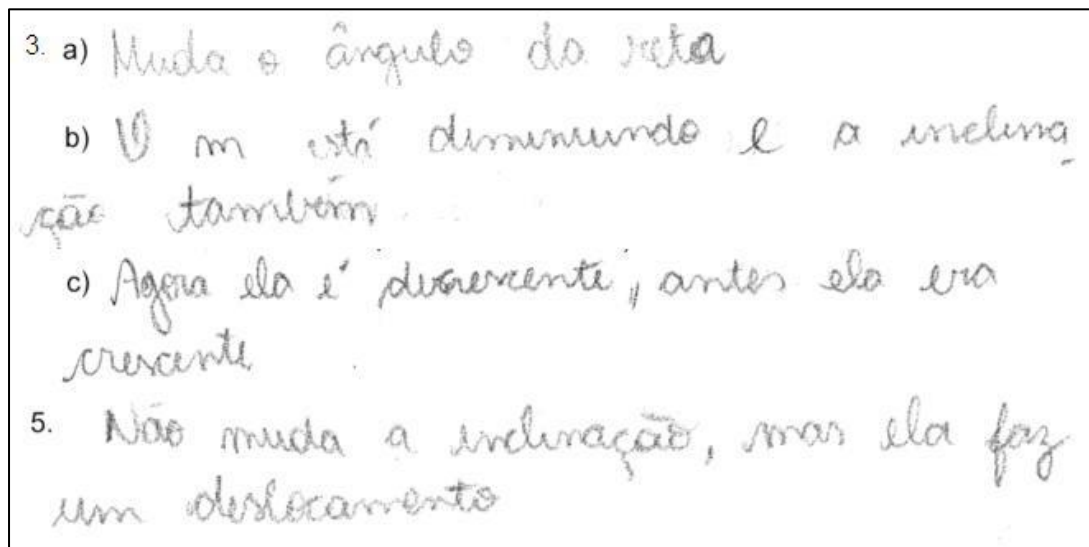 3. a) Muda o ângulo da reta
b) O m está diminuindo e a inclina
ção também
c) Agora ela é decrescente, antes ela era
crescente
5. Não muda a inclinação, mas ela faz
um deslocamento